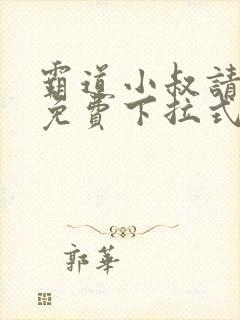 霸道小叔請
免費下拉式
郭華